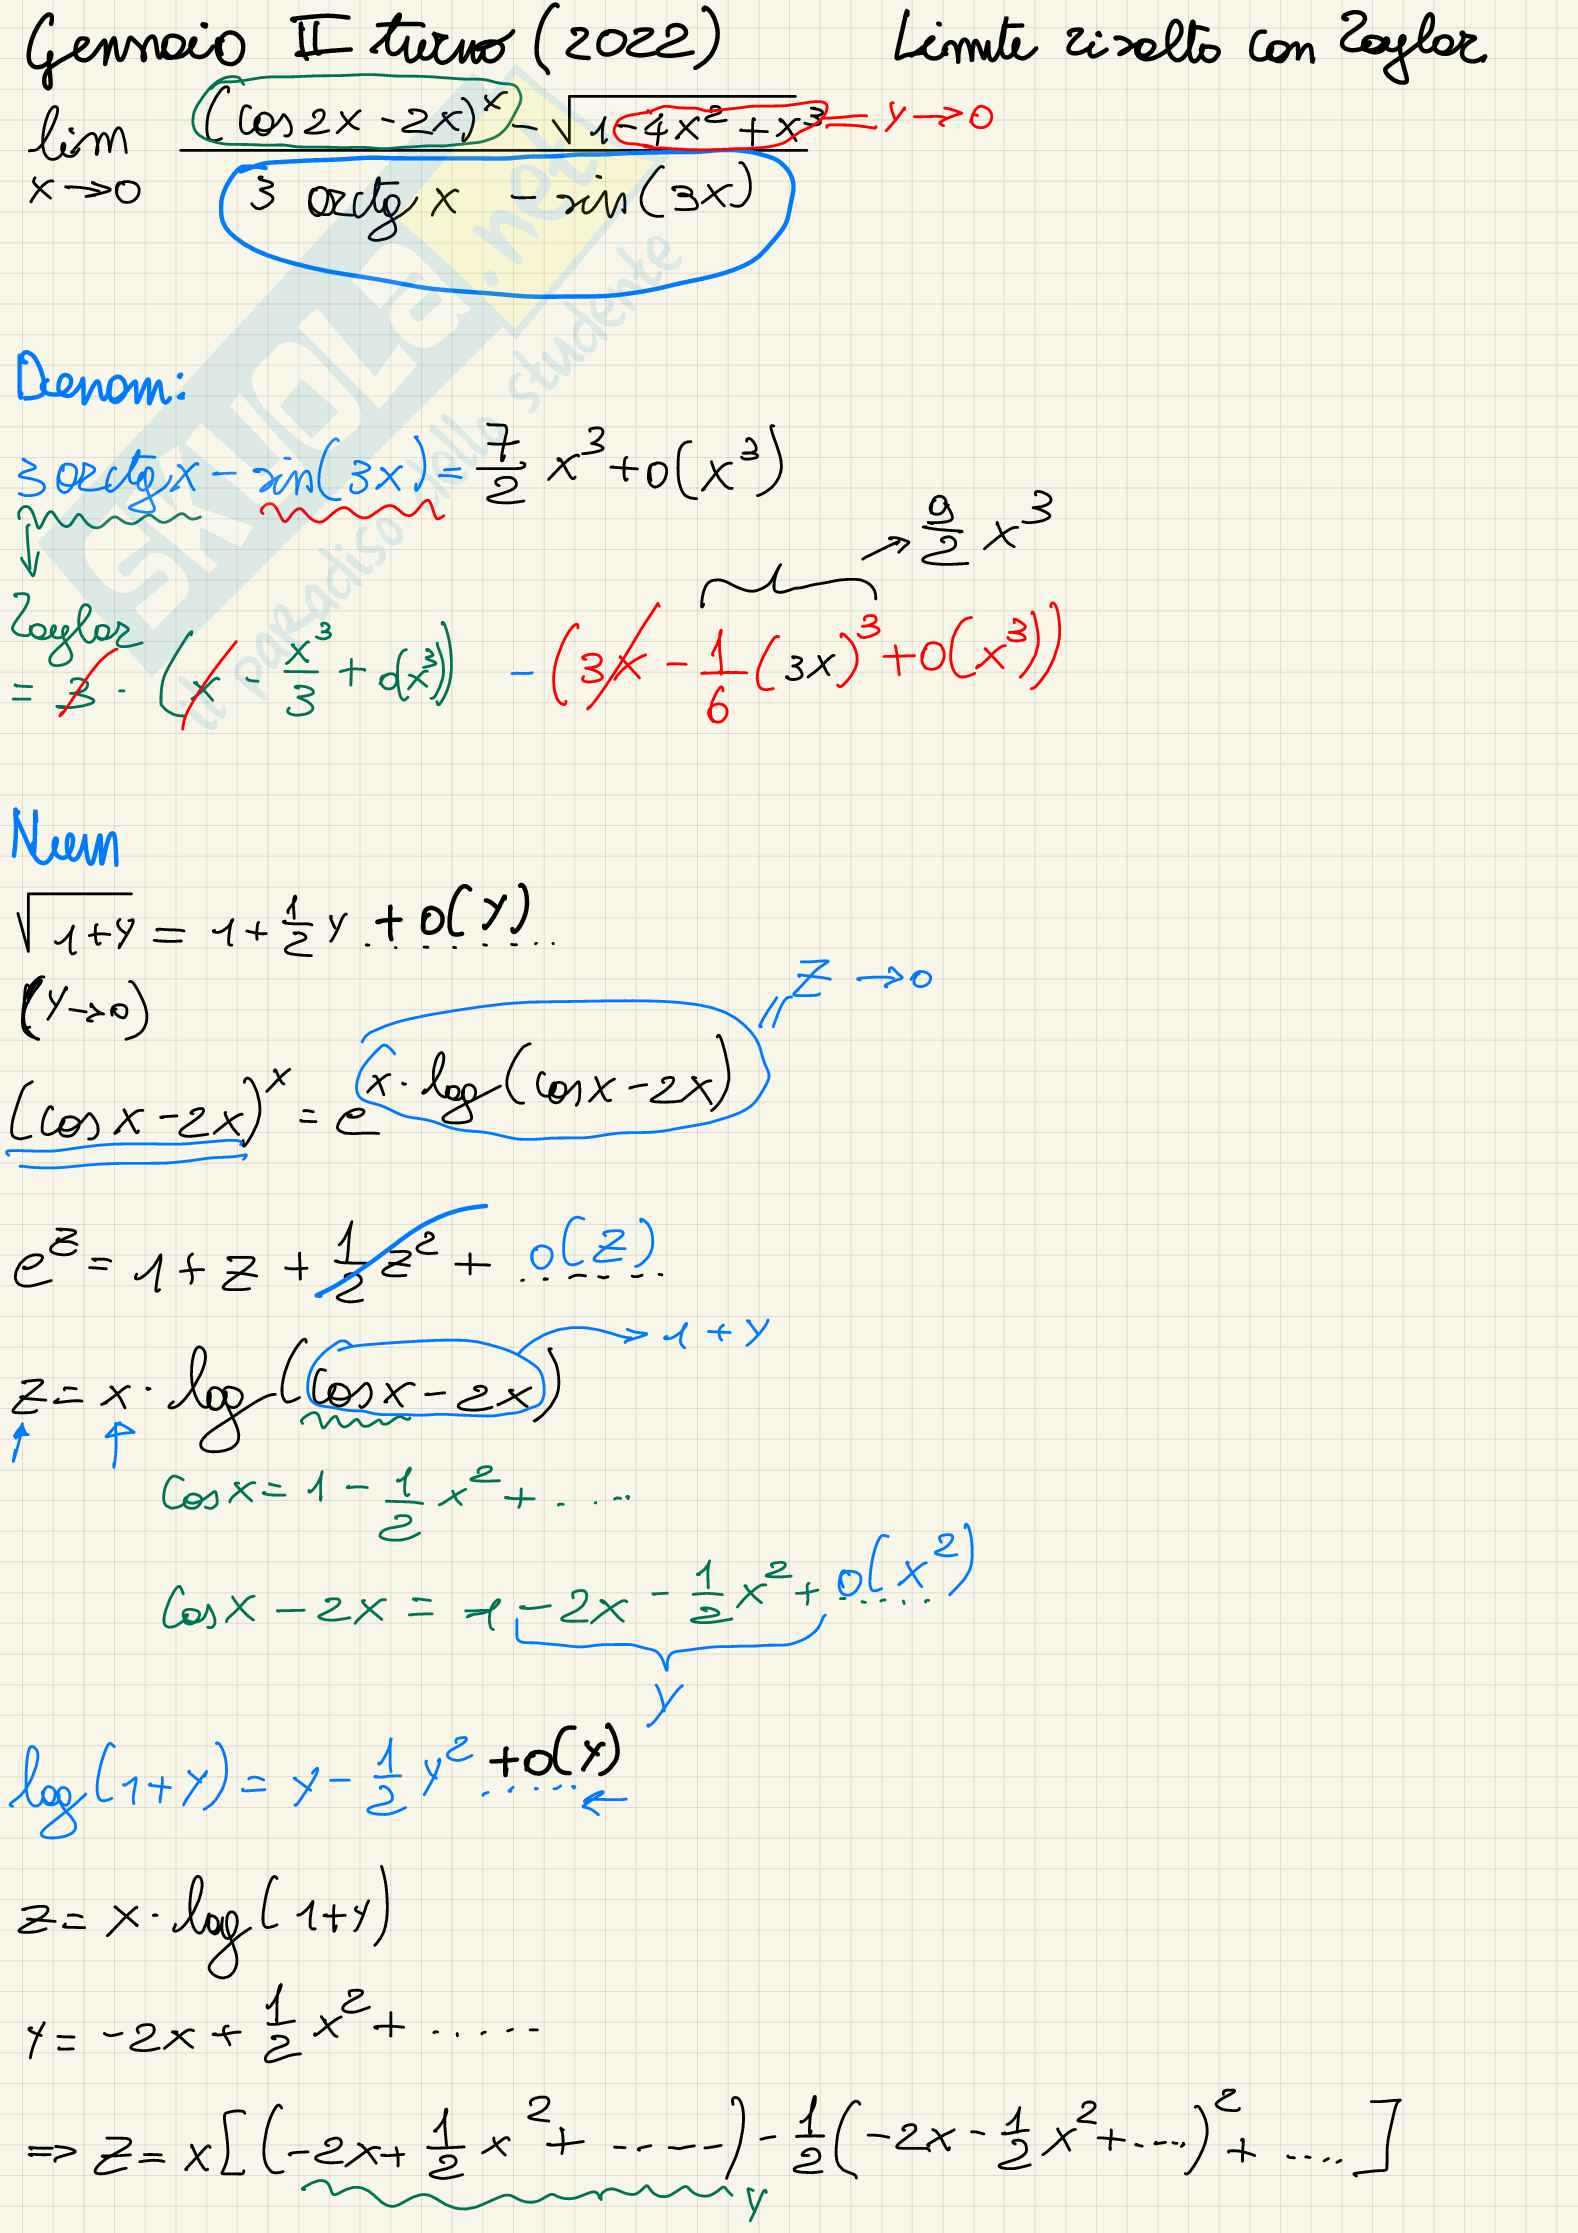 Gennaio II turno (2022) Limite risolto con Taylor
lim x→0 ((cos 2x - 2x)^x - √(1 - 4x² + x³)) / (3 arctg x - sin(3x)) = y → 0
Denom:
3 arctg x - sin(3x) = 7/2 x³ + o(x³)
→ 9/2 x³
Taylor
= 3 · (x - x³/3 + o(x³)) - (3x - 1/6 (3x)³ + o(x³))
Num
√(1+y) = 1 + 1/2 y + o(y) .......
(y→0)
z → 0
(cos x - 2x)^x = e^(x · log(cos x - 2x))
e^z = 1 + z + 1/2 z² + o(z)
→ 1 + y
z = x · log(cos x - 2x)
cos x = 1 - 1/2 x² + .....
cos x - 2x = 1 - 2x - 1/2 x² + o(x²)
y
log(1+y) = y - 1/2 y² + o(y) ←
z = x · log(1+y)
y = -2x + 1/2 x² + ......
⇒ z = x[(-2x + 1/2 x² + ------) - 1/2 (-2x - 1/2 x² + ....)² + .....]
y
SKUOLA.net
il paradiso dello studente